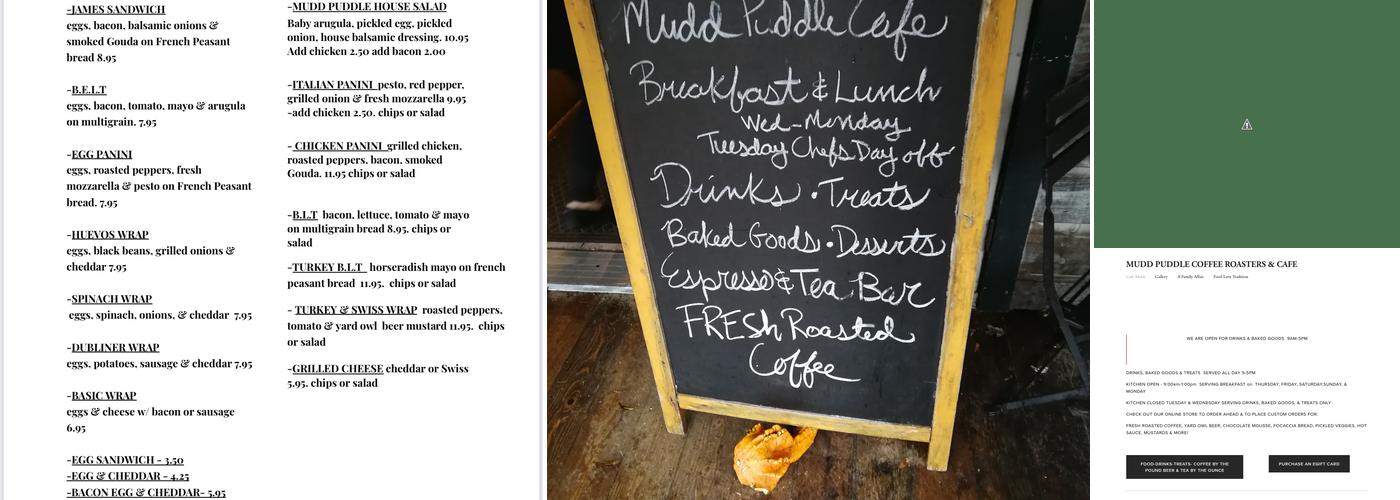 -JAMES SANDWICH
eggs, bacon, balsamic onions &
smoked Gouda on French Peasant
bread 8.95
-B.E.L.T
eggs, bacon, tomato, mayo & arugula
on multigrain. 7.95
-EGG PANINI
eggs, roasted peppers, fresh
mozzarella & pesto on French Peasant
bread. 7.95
-HUEVOS WRAP
eggs, black beans, grilled onions &
cheddar 7.95
-SPINACH WRAP
eggs, spinach, onions, & cheddar 7.95
-DUBLINER WRAP
eggs, potatoes, sausage & cheddar 7.95
-BASIC WRAP
eggs & cheese w/ bacon or sausage
6.95
-EGG SANDWICH - 3.50
-EGG & CHEDDAR - 4.25
-BACON EGG & CHEDDAR- 5.95
-MUDD PUDDLE HOUSE SALAD
Baby arugula, pickled egg. pickled
onion, house balsamic dressing. 10.95
Add chicken 2.50 add bacon 2.00
-ITALIAN PANINI pesto, red pepper,
grilled onion & fresh mozzarella 9.95
-add chicken 2.50. chips or salad
- CHICKEN PANINI grilled chicken,
roasted peppers, bacon, smoked
Gouda. 11.95 chips or salad
-B.L.T bacon, lettuce, tomato & mayo
on multigrain bread 8.95. chips or
salad
-TURKEY B.L.T horseradish mayo on french
peasant bread 11.95. chips or salad
- TURKEY & SWISS WRAP roasted peppers,
tomato & yard owl beer mustard 11.95. chips
or salad
-GRILLED CHEESE cheddar or Swiss
5.95. chips or salad
Mudd Puddle Cafe
Breakfast & Lunch
Wed-Monday
Tuesday Chefs Day off
Drinks • Treats
Baked Goods • Desserts
Espresso & Tea Bar
FRESh Roasted
Coffee
MUDD PUDDLE COFFEE ROASTERS & CAFE
Cafe Menu Gallery A Family Affair Food Love Tradition
WE ARE OPEN FOR DRINKS & BAKED GOODS 9AM-5PM
DRINKS, BAKED GOODS & TREATS SERVED ALL DAY 9-5PM
KITCHEN OPEN - 9:00am-1:00pm SERVING BREAKFAST on THURSDAY, FRIDAY, SATURDAY,SUNDAY, &
MONDAY
KITCHEN CLOSED TUESDAY & WEDNESDAY SERVING DRINKS, BAKED GOODS, & TREATS ONLY
CHECK OUT OUR ONLINE STORE TO ORDER AHEAD & TO PLACE CUSTOM ORDERS FOR:
FRESH ROASTED COFFEE, YARD OWL BEER, CHOCOLATE MOUSSE, FOCACCIA BREAD, PICKLED VEGGIES, HOT
SAUCE, MUSTARDS & MORE!
FOOD-DRINKS-TREATS- COFFEE BY THE
POUND BEER & TEA BY THE OUNCE
PURCHASE AN EGIFT CARD